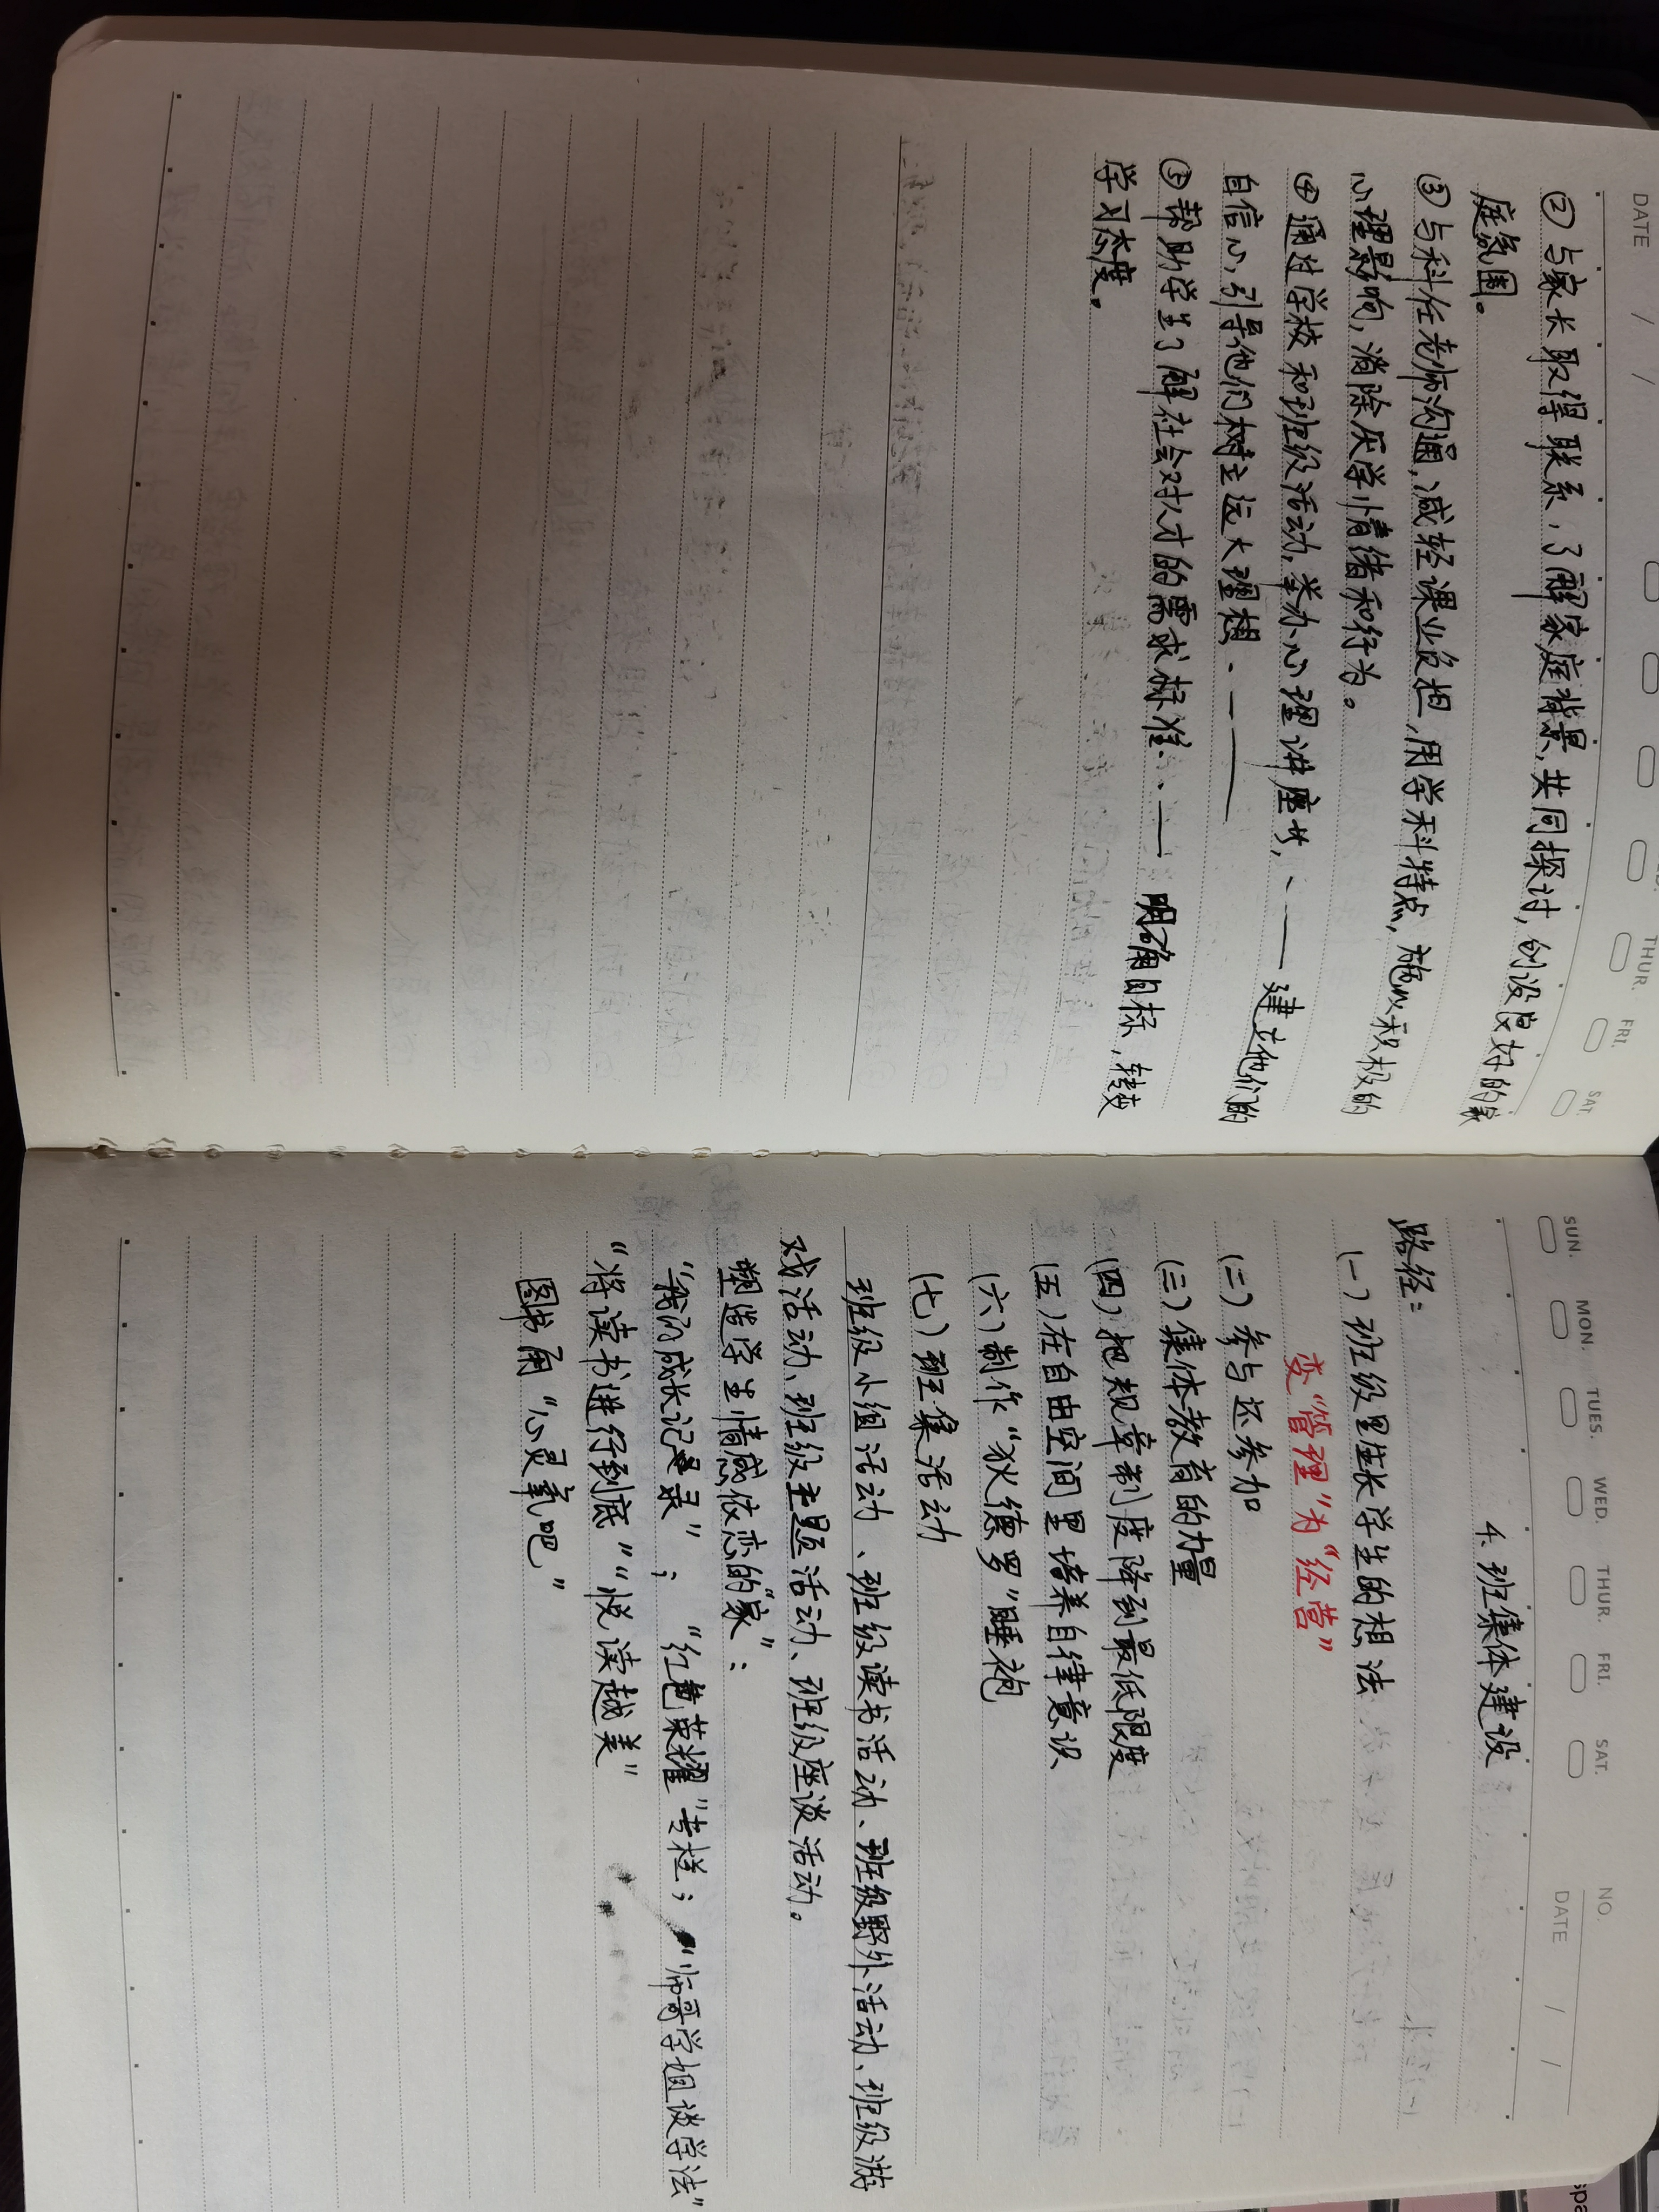 DATE / /
THUR. FRI. SAT.
② 与家长取得联系，了解家庭背景，共同探讨，创设良好的家
庭氛围。
③ 与科任老师沟通，减轻课业负担，用学科特点，施以积极的
心理影响，消除厌学情绪和行为。
④ 通过学校和班级活动，举办心理讲座等，、—— 建立他们的
自信心，引导他们树立远大理想、——
⑤ 帮助学生了解社会对人才的需求标准、—— 明确目标，转变
学习态度。
SUN. MON. TUES. WED. THUR. FRI. SAT.
NO.
DATE / /
4. 班集体建设
路径：
(一) 班级里生长学生的想法
变“管理”为“经营”
(二) 参与还参加
(三) 集体教育的力量
(四) 把规章制度降到最低限度
(五) 在自由空间里培养自律意识
(六) 制作“狄德罗”睡袍
(七) 班集活动
班级小组活动、班级读书活动、班级野外活动、班级游
戏活动、班级主题活动、班级座谈活动。
塑造学生情感依恋的“家”：
“我的成长记录”； “红色荣耀”专栏； “师哥学姐谈学法”
“将读书进行到底” “悦读越美”
图书角“心灵氧吧”